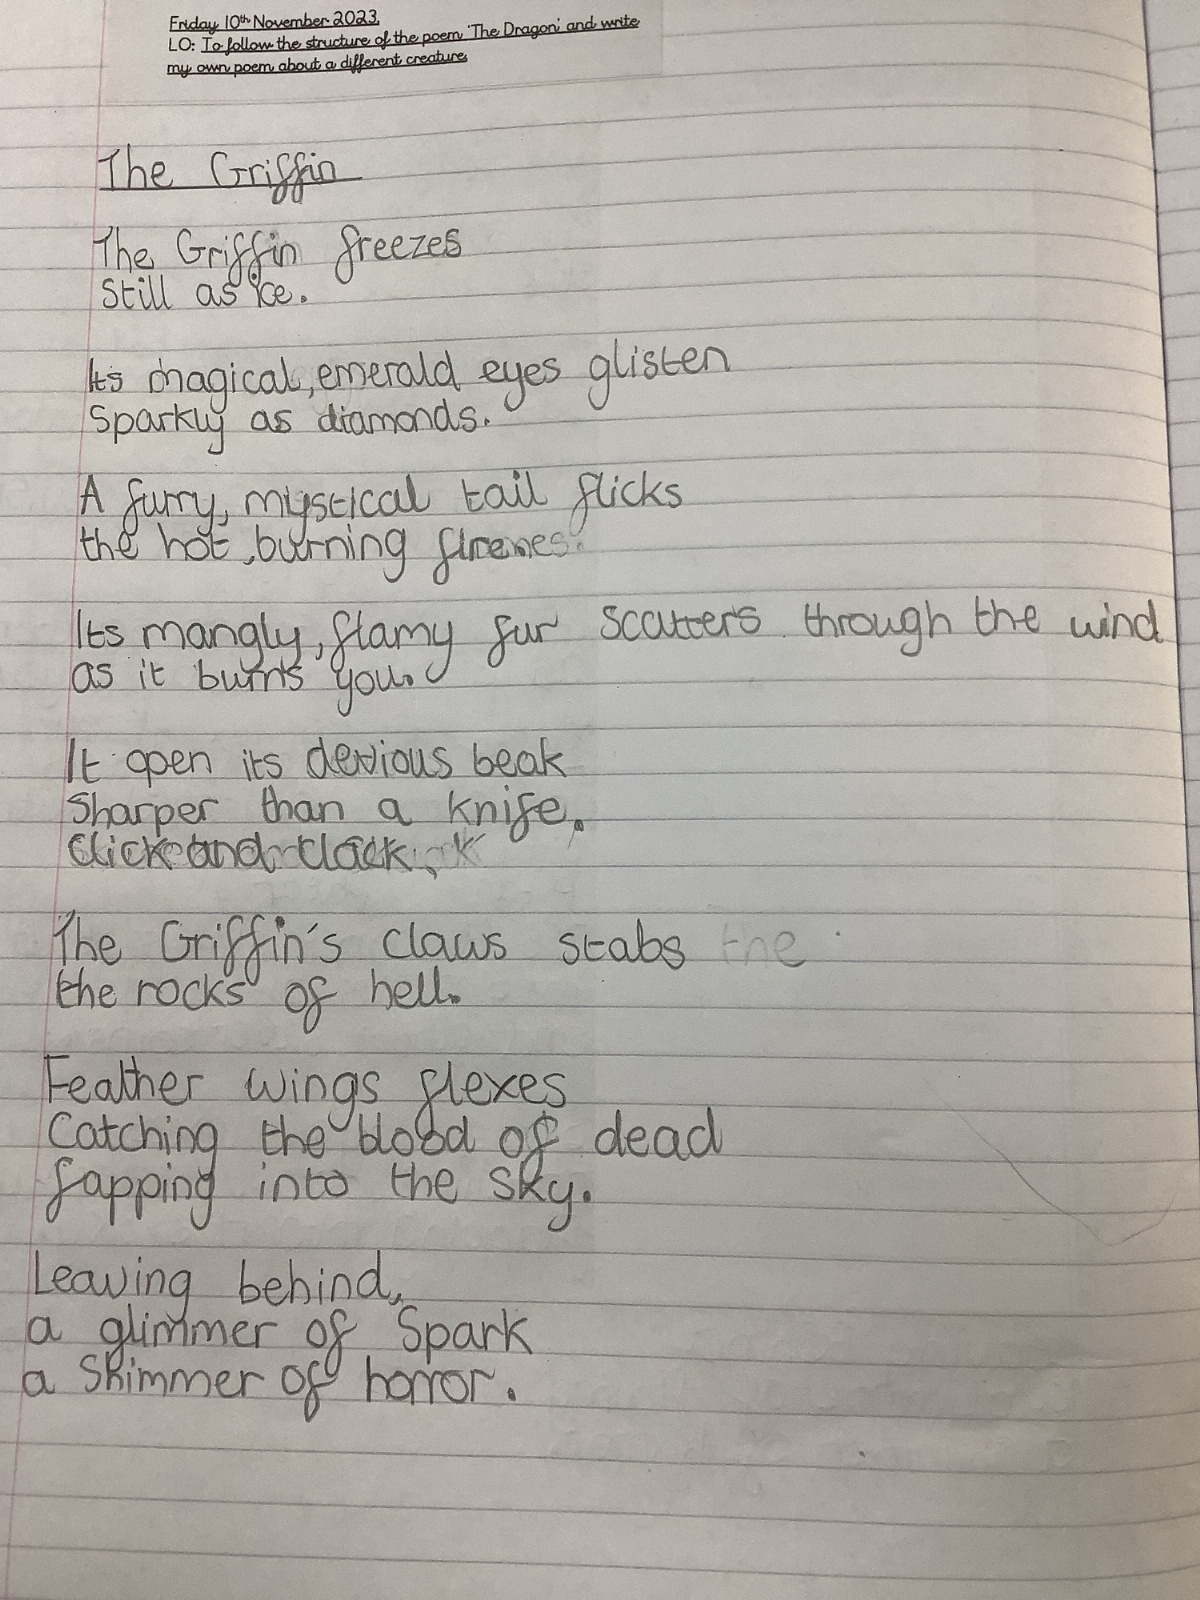 Friday 10th November 2023
LO: To follow the structure of the poem 'The Dragon' and write
my own poem about a different creature
The Griffin
The Griffin freezes
Still as ice.
Its magical, emerald eyes glisten
Sparkly as diamonds.
A furry, mystical tail flicks
the hot, burning
Its mangly, flamy fur scatters through the wind
as it burns you.
It open its devious beak
Sharper than a knife.
Click and clack,
The Griffin's claws stabs the
the rocks of hell.
Feather wings flexes
Catching the blood of dead
fapping into the sky.
Leaving behind,
a glimmer of Spark
a Shimmer of horror.